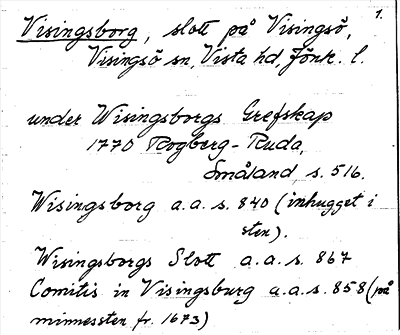 1.
Visingsborg, slott på Visingsö,
Visingsö sn, Vista hd, Jönk. l.
under Wisingsborgs Grefskap
1770 Rogberg-Ruda,
Småland s. 516.
Wisingsborg a.a.s. 840 (inhugget i
sten).
Wisingsborgs Slott a.a.s. 867
Comitis in Visingsburg a.a.s. 858 (på
minnessten fr. 1673)